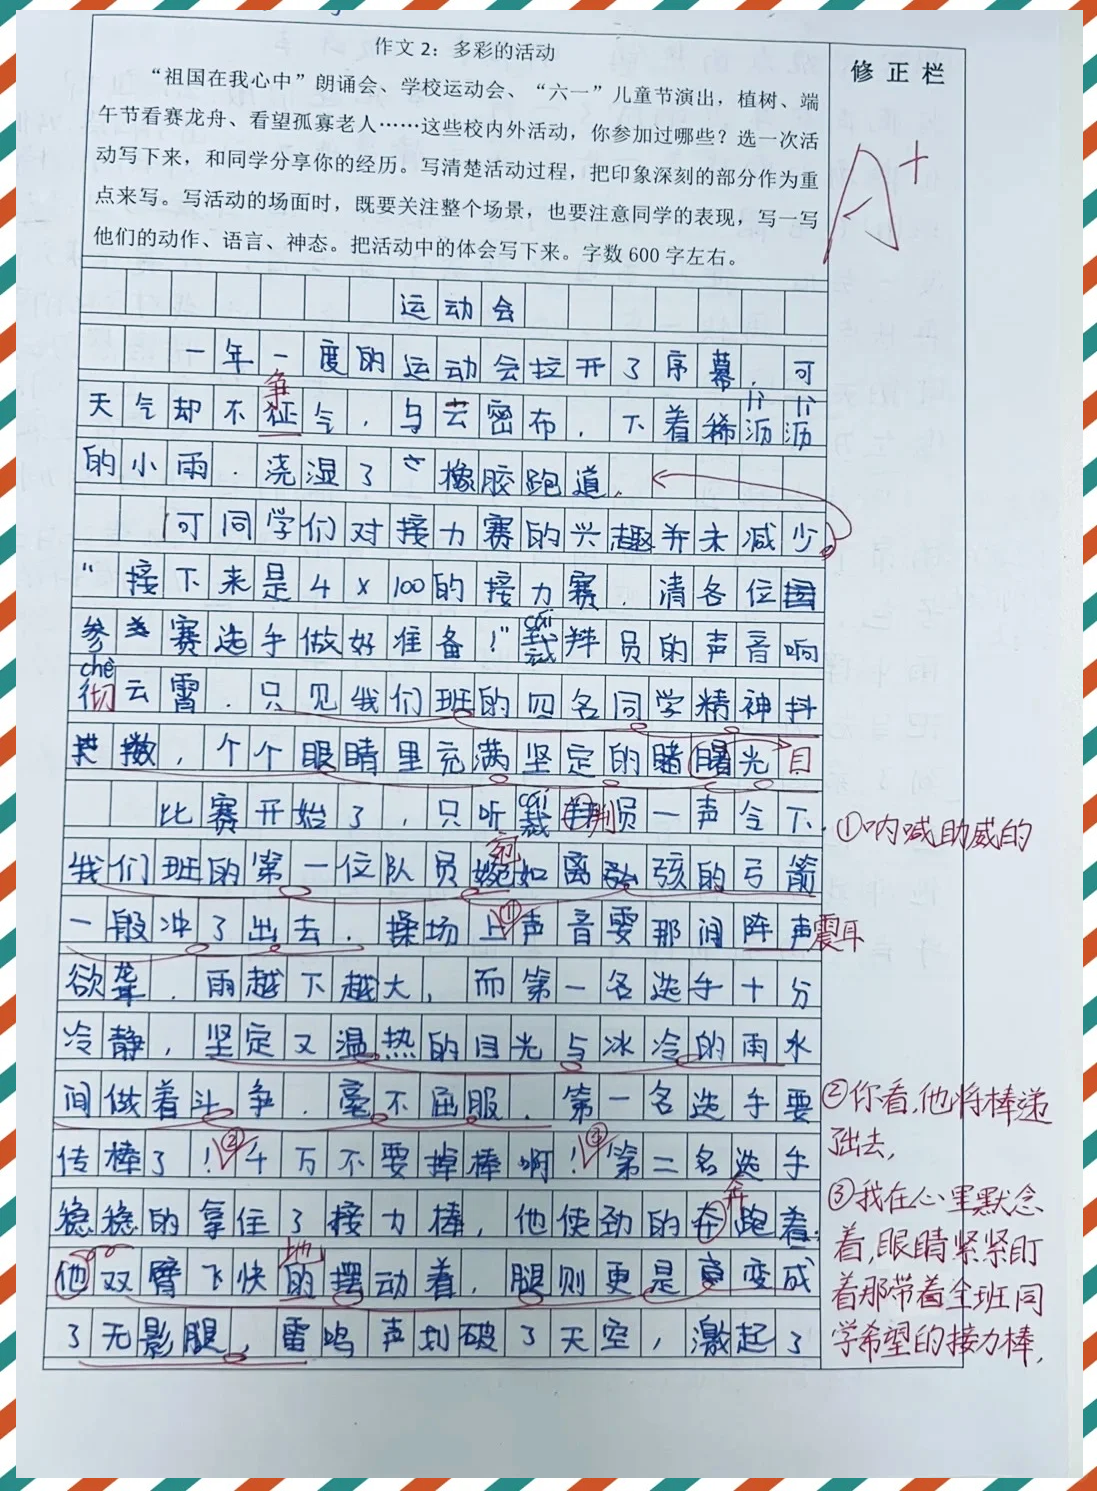 作文2：多彩的活动
修正栏
“祖国在我心中”朗诵会、学校运动会、“六一”儿童节演出，植树、端
午节看赛龙舟、看望孤寡老人……这些校内外活动，你参加过哪些？选一次活
动写下来，和同学分享你的经历。写清楚活动过程，把印象深刻的部分作为重
点来写。写活动的场面时，既要关注整个场景，也要注意同学的表现，写一写
他们的动作、语言、神态。把活动中的体会写下来。字数600字左右。
A+
运动会
一年一度的运动会拉开了序幕，可
争
天气却不征气，乌云密布，下着稀沥沥
lì lì
的小雨．浇湿了橡胶跑道．
可同学们对接力赛的兴趣并未减少。
“接下来是4×100的接力赛，清各位
参赛选手做好准备！”裁判员的声音响
cái
chè
彻云霄．只见我们班的四名同学精神抖
擞，个个眼睛里充满坚定的曙光目
比赛开始了，只听裁判员一声令下，
cái
①呐喊助威的
宛
我们班的第一位队员婉如离弦的弓箭
一般冲了出去．操场上①声音霎那间阵声震耳
欲聋，雨越下越大，而第一名选手十分
冷静，坚定又温热的目光与冰冷的雨水
间做着斗争，毫不屈服．第一名选手要
②你看，他将棒递
了出去，
传棒了！②千万不要掉棒啊！③第二名选手
③我在心里默念
着，眼睛紧紧盯
着那带着全班同
学希望的接力棒，
稳稳的拿住了接力棒，他使劲的奔跑着．
奔
地
他双臂飞快的摆动着，腿则更是变成
了无影腿，雷鸣声划破了天空，激起了